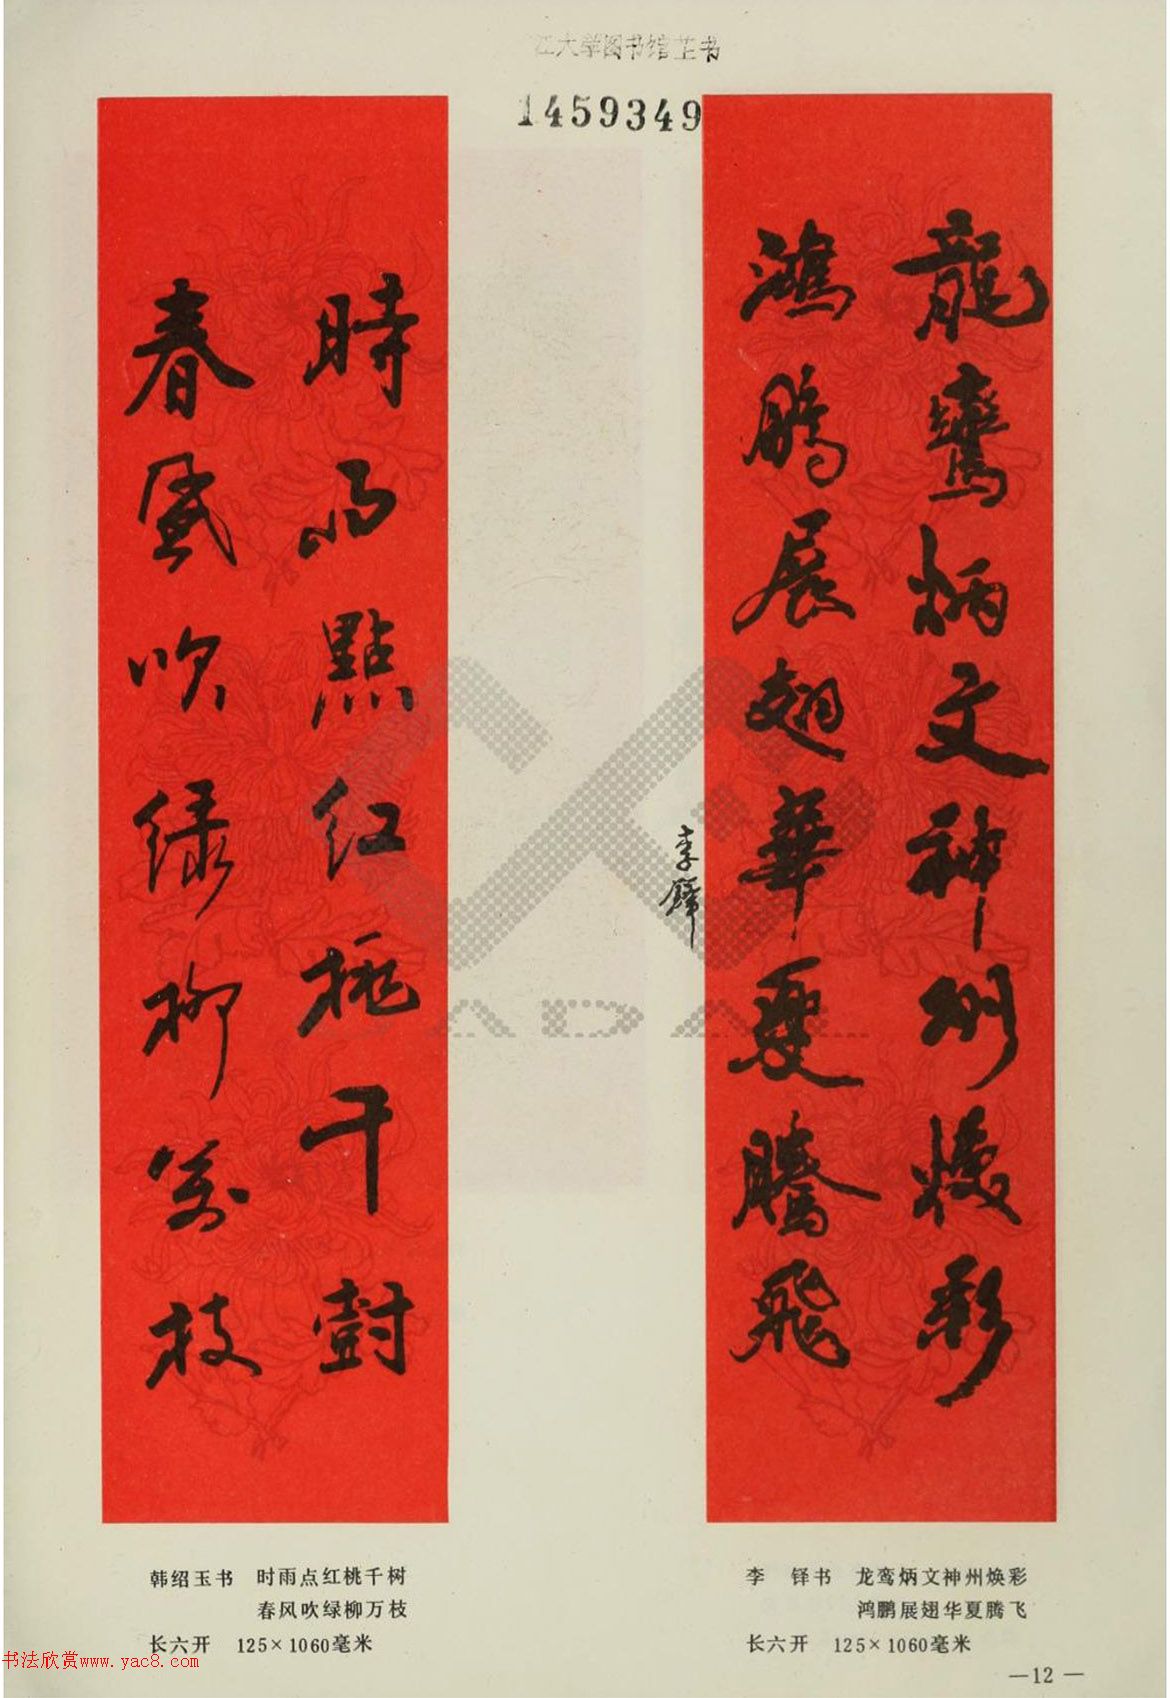 江大学图书馆芷书
1459349
龍鸞炳文神州煥彩
鴻鵬展翅華夏騰飛
李鐸
時雨點红桃千樹
春風吹绿柳萬枝
CADAL
韩绍玉书 时雨点红桃千树
春风吹绿柳万枝
长六开 125×1060毫米
李 铎书 龙鸾炳文神州焕彩
鸿鹏展翅华夏腾飞
长六开 125×1060毫米
—12—
书法欣赏www.yac8.com